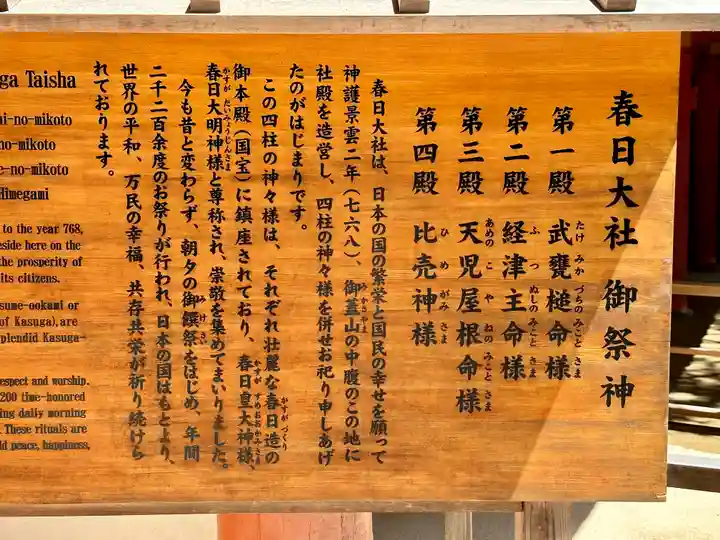 春日大社 御祭神
第一殿 武甕槌命様
たけ みか づちの みこと さま
第二殿 経津主命様
ふ つ ぬしの みこと さま
第三殿 天児屋根命様
あめの こ や ねの みこと さま
第四殿 比売神様
ひ め がみ さま
春日大社は、日本の国の繁栄と国民の幸せを願って
神護景雲二年（七六八）、御蓋山の中腹のこの地に
社殿を造営し、四柱の神々様を併せお祀り申しあげ
たのがはじまりです。
この四柱の神々様は、それぞれ壮麗な春日造の
かすがづくり
御本殿（国宝）に鎮座されており、春日皇大神様、
かすが すめおおかみさま
春日大明神様と尊称され、崇敬を集めてまいりました。
かすが だいみょうじんさま
今も昔と変わらず、朝夕の御饌祭をはじめ、年間
みけさい
二千二百余度のお祭りが行われ、日本の国はもとより、
世界の平和、万民の幸福、共存共栄が祈り続けら
れております。
ga Taisha
ai-no-mikoto
no-mikoto
e-no-mikoto
Himegami
to the year 768,
eside here on the
the prosperity of
its citizens.
sume-ookami or
of Kasuga), are
plendid Kasuga-
espect and worship.
200 time-honored
ing daily morning
. These rituals are
ld peace, happiness,